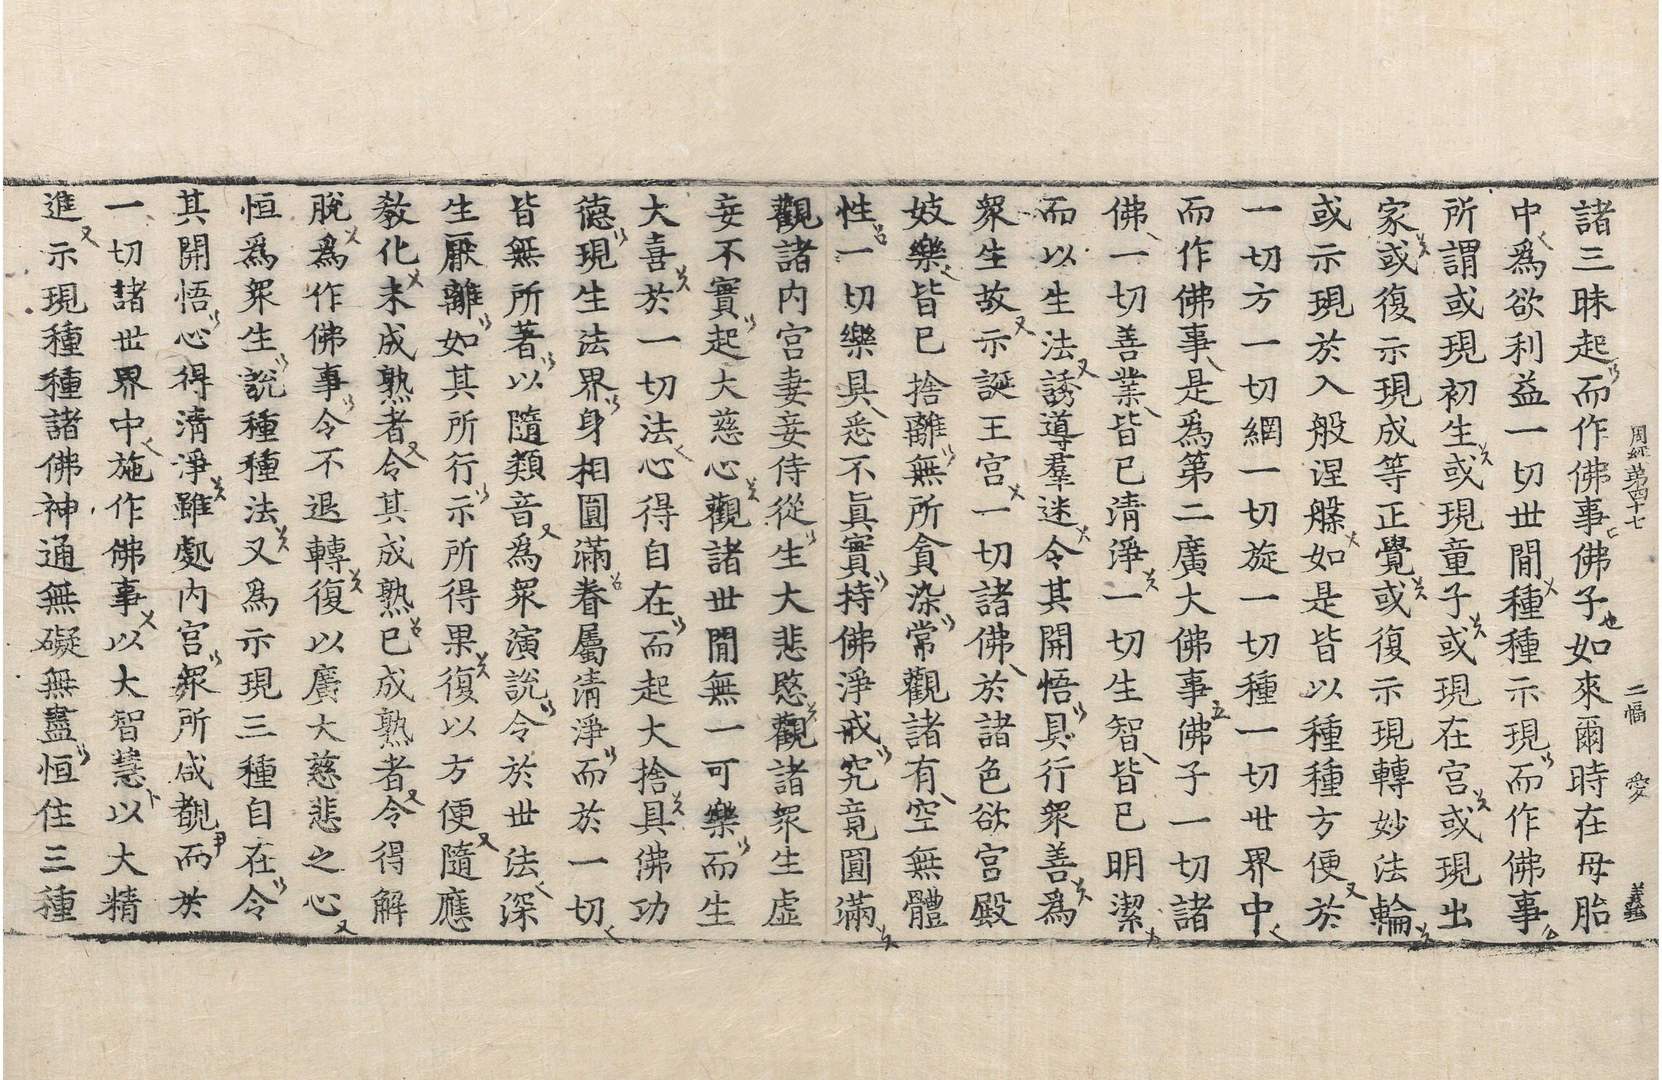 周經 第四十七 二幅 愛 義
諸三昧起而作佛事佛子如來爾時在母胎
中爲欲利益一切世間種種示現而作佛事
所謂或現初生或現童子或現在宮或現出
家或復示現成等正覺或復示現轉妙法輪
或示現於入般涅槃如是皆以種種方便於
一切方一切網一切旋一切種一切世界中
而作佛事是爲第二廣大佛事佛子一切諸
佛一切善業皆已清淨一切生智皆已明潔
而以生法誘導羣迷令其開悟具行衆善爲
衆生故示誕王宮一切諸佛於諸色欲宮殿
妓樂皆已捨離無所貪染常觀諸有空無體
性一切樂具悉不眞實持佛淨戒究竟圓滿
觀諸內宮妻妾侍從生大悲愍觀諸衆生虛
妄不實起大慈心觀諸世間無一可樂而生
大喜於一切法心得自在而起大捨具佛功
德現生法界身相圓滿眷屬清淨而於一切
皆無所著以隨類音爲衆演說令於世法深
生厭離如其所行示所得果復以方便隨應
敎化未成熟者令其成熟已成熟者令得解
脫爲作佛事令不退轉復以廣大慈悲之心
恒爲衆生說種種法又爲示現三種自在令
其開悟心得清淨雖處內宮衆所咸覩而於
一切諸世界中施作佛事以大智慧以大精
進示現種種諸佛神通無礙無盡恒住三種